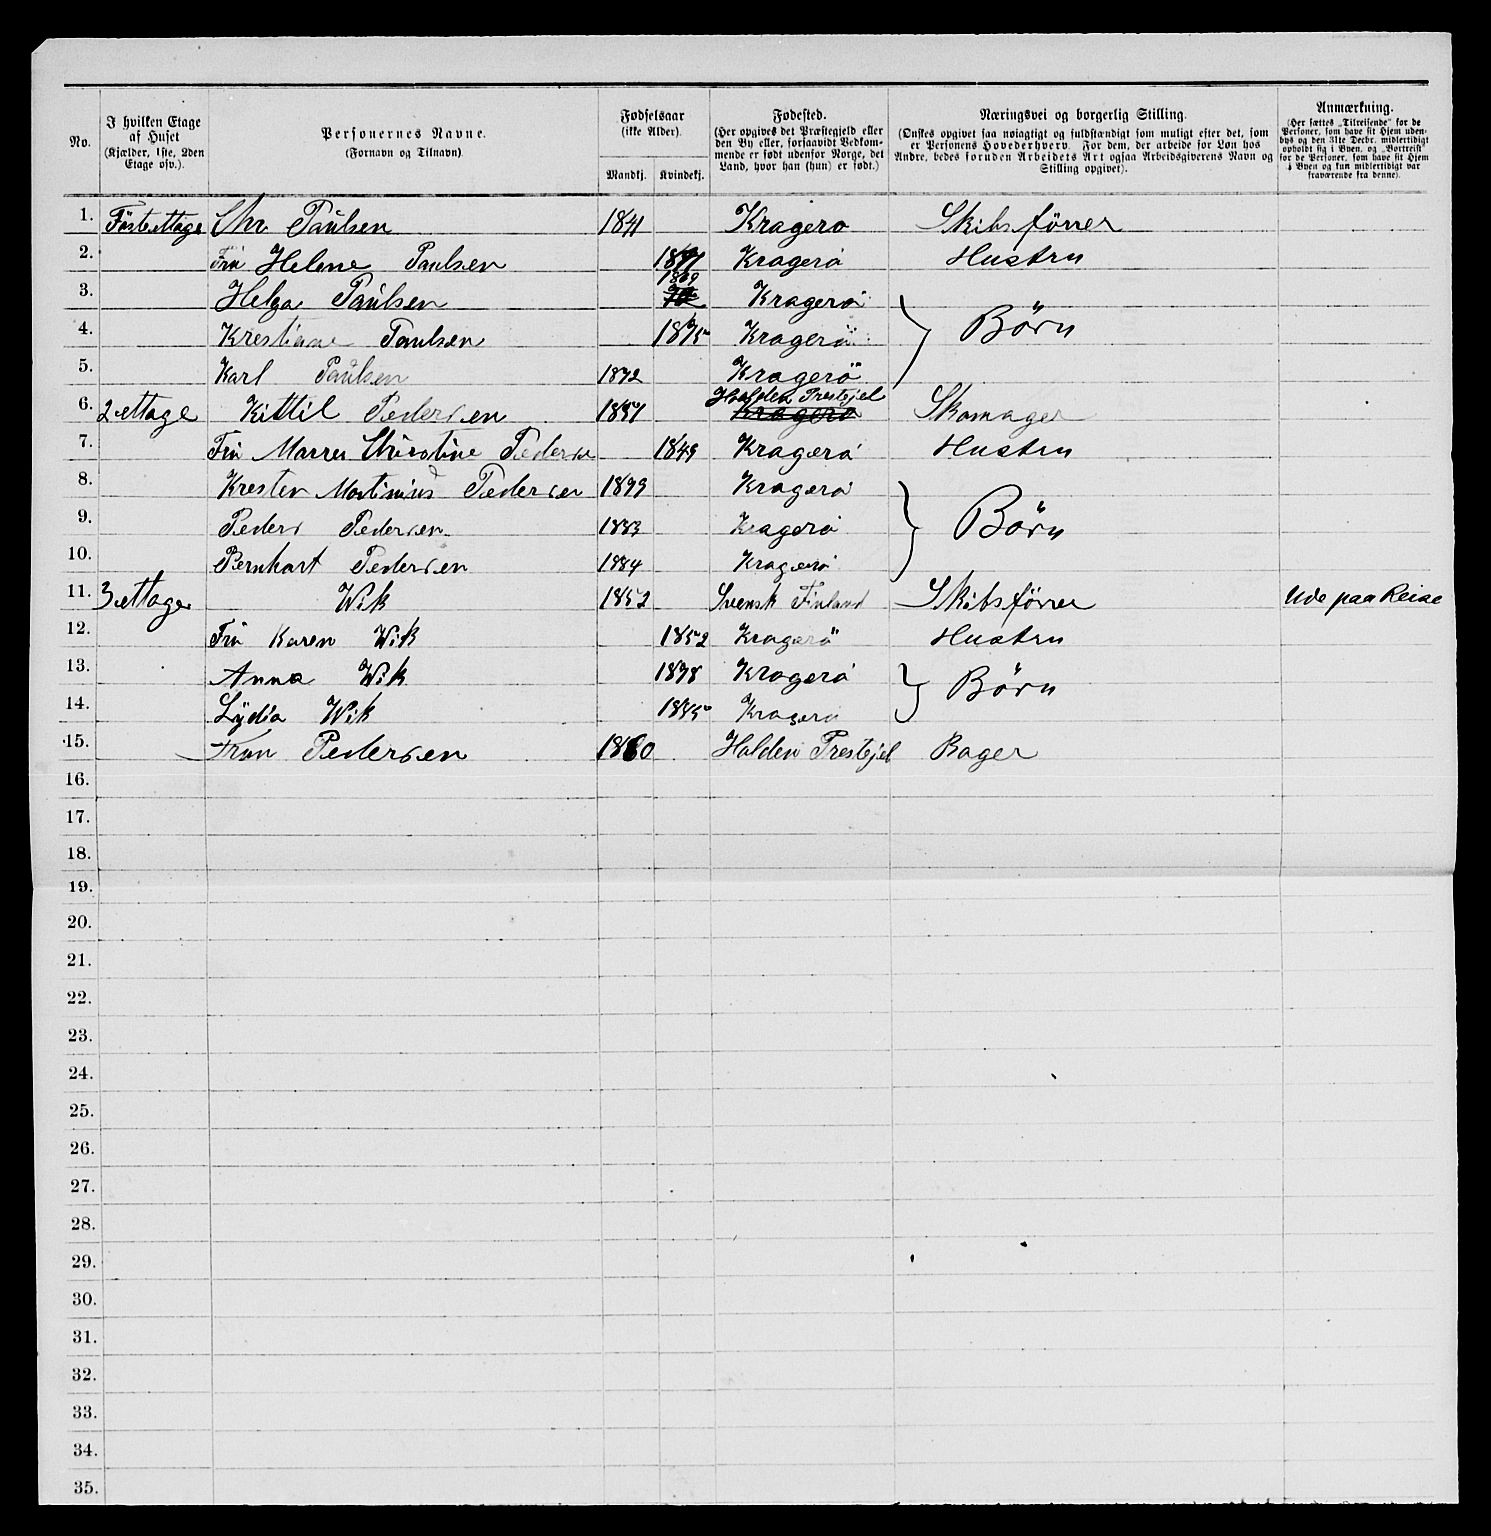 No.
I hvilken Etage af Huset (Kjælder, 1ste, 2den Etage osv.).
Personernes Navne. (Fornavn og Tilnavn).
Fødselsaar (ikke Alder). Mandkj. Kvindekj.
Fødested. (Her opgives det Præstegjeld eller den By eller, forsaavidt Vedkommende er født udenfor Norge, det Land, hvor han (hun) er født.)
Næringsvei og borgerlig Stilling. (Ønskes opgivet saa nøiagtigt og fuldstændigt som muligt efter det, som er Personens Hovederhverv. For dem, der arbeide for Løn hos Andre, bedes foruden Arbeidets Art ogsaa Arbeidsgiverens Navn og Stilling opgivet).
Anmærkning. (Her sættes „Tilreisende“ for de Personer, som have sit Hjem udenbys og den 31te Decbr. midlertidigt opholdt sig i Byen, og „Bortreist“ for de Personer, som have sit Hjem i Byen og kun midlertidigt var fraværende fra denne).
1. Föste ettage Chr Paulsen 1841 Kragero Skibsförrer
2. Frü Helene Paulsen Kragerö Hustru
3. Helga Paulsen 1869 Kragerö
4. Krestiane Paulsen 1875 Kragerö Börn
5. Karl Paulsen 1872 Kragerö
6. 2 ettage Kittil Pedersen 1851 Hvalden Prestejel Kragerö Skomager
7. Frü Christine Pedersen 1849 Kragerö Hustru
8. Kresten Martinius Pedersen 1879 Kragerö
9. Peder Pedersen 1883 Kragerö Börn
10. Bernhart Pedersen 1884 Kragerö
11. 3 ettage Wik 1852 Svensk Finland Skibsförrer Ude paa Reise
12. Frü Karen Wik 1852 Kragerö Hustru
13. Anna Wik 1878 Kragerö Börn
14. Lydia Wik 1885 Kragerö
15. Pedersen 1860 Holden Prestejel Bager
16.
17.
18.
19.
20.
21.
22.
23.
24.
25.
26.
27.
28.
29.
30.
31.
32.
33.
34.
35.